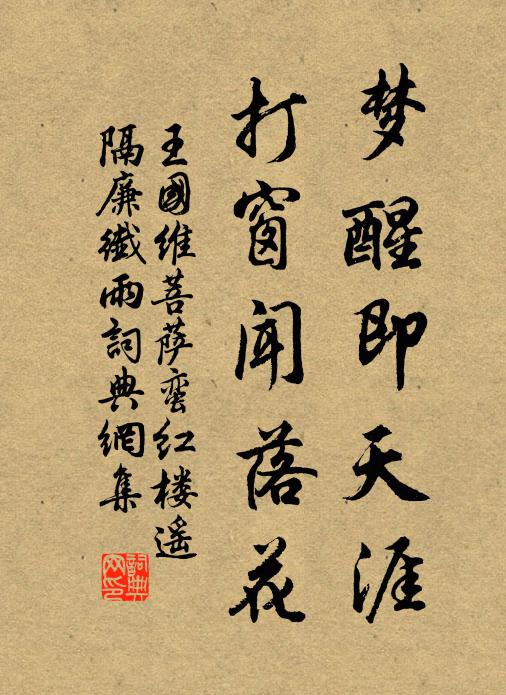 梦醒即天涯
打窗闻落花
王國维菩萨蛮红楼遥
隔廉纖雨詞典網集
詞典
网印